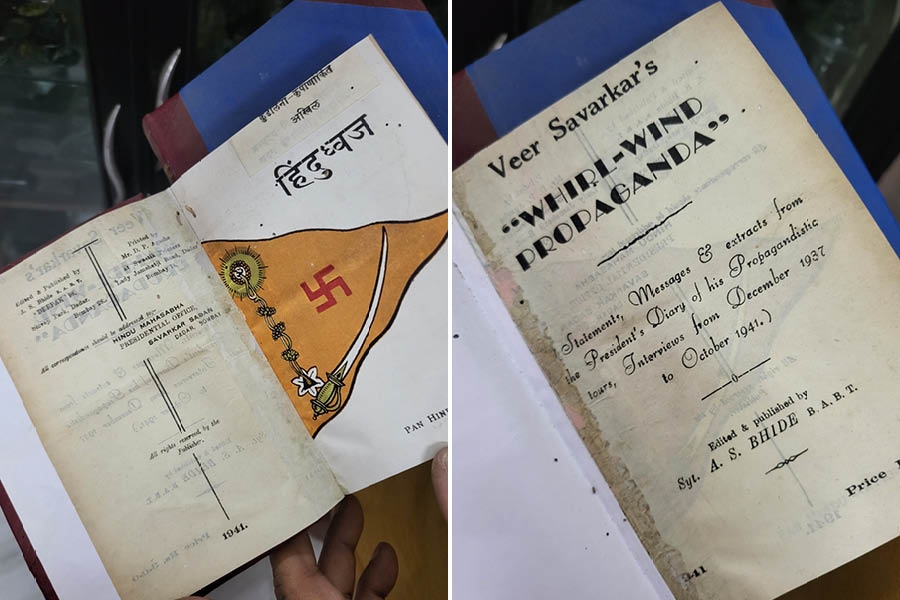 Edited & Published by
A. S. Bhide B.A.B.T.
"DEEPAK"
Nawab Park, Dadar,
Bombay
Printed by
Mr. D. P. Apshe
Swastik Printers
Lady Jamshetji Road, Dadar
Bombay
All correspondence should be addressed to:-
HINDU MAHASABHA
PRESIDENTIAL OFFICE,
SAVARKAR SADAN
DADAR, BOMBAY
All rights reserved by the
Publisher.
1941.
अखिल
हिंदुध्वज
PAN HIN
Veer Savarkar's
"WHIRL-WIND
PROPAGANDA"
Statements, Messages & extracts from
the President's Diary of his Propagandistic
tours, Interviews from December 1937
to October 1941.)
Edited & published by
Syt. A. S. BHIDE B. A. B. T.
Price
941